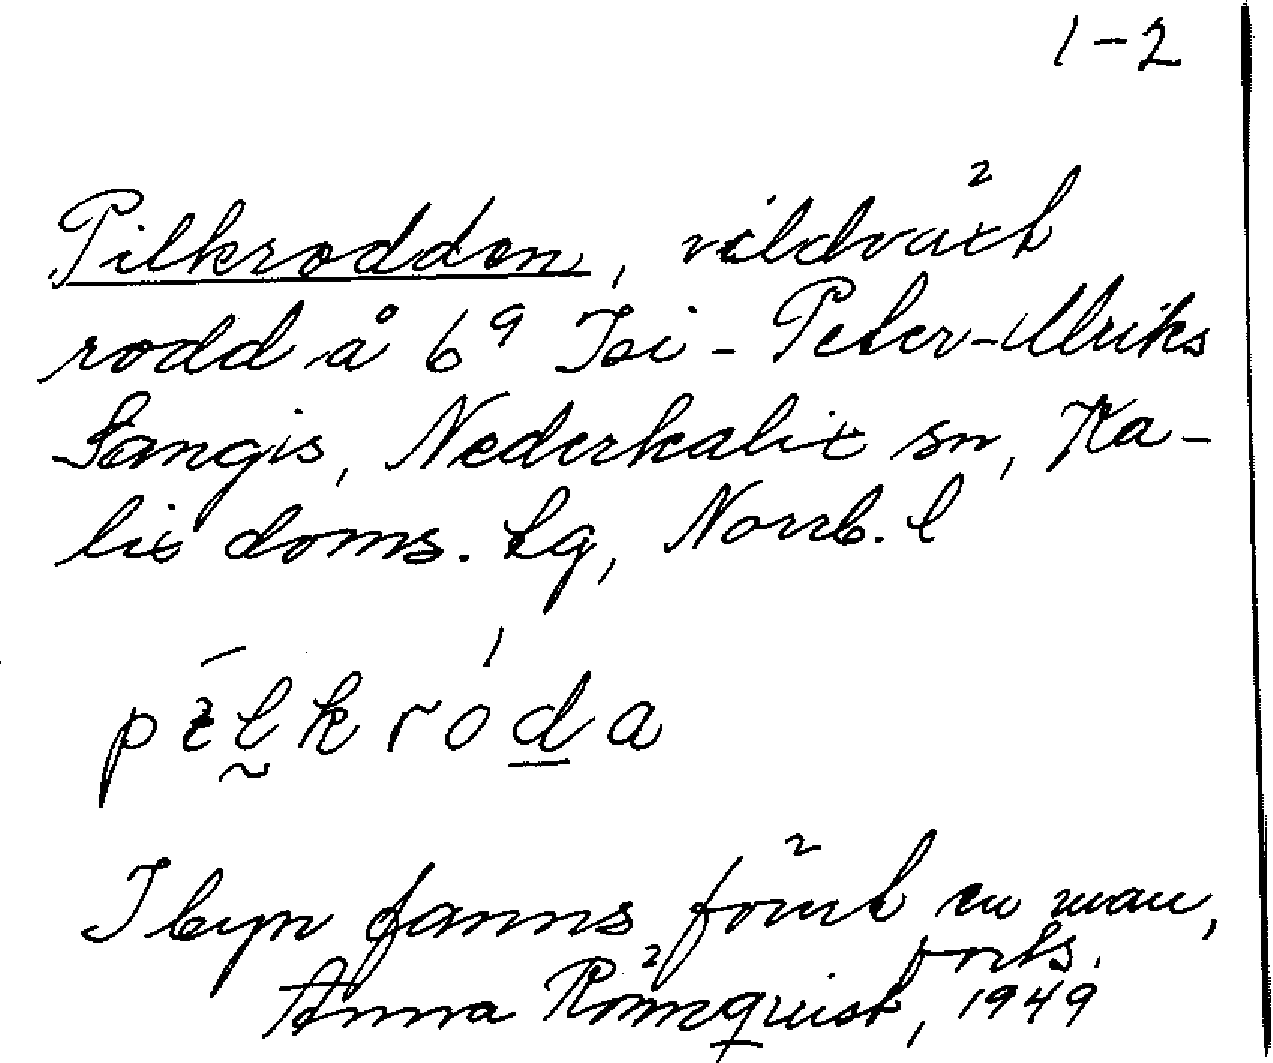 1-2
Pilkrodden, vildväxt
rodd å 6⁹ Isi-Peter-Ulriks
Sangis, Nederkalix sn, Ka-
lix doms. lg, Norrb. l
I byn fanns förut en man,
forts.
Anna Rönnquist, 1949